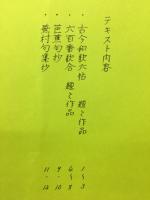 テキスト内容
・古今和歌六帖 題と作品 1〜3
・六百番歌合 題と作品 6〜8
・芭蕉句抄 9・10
・蕪村句集抄 11・12